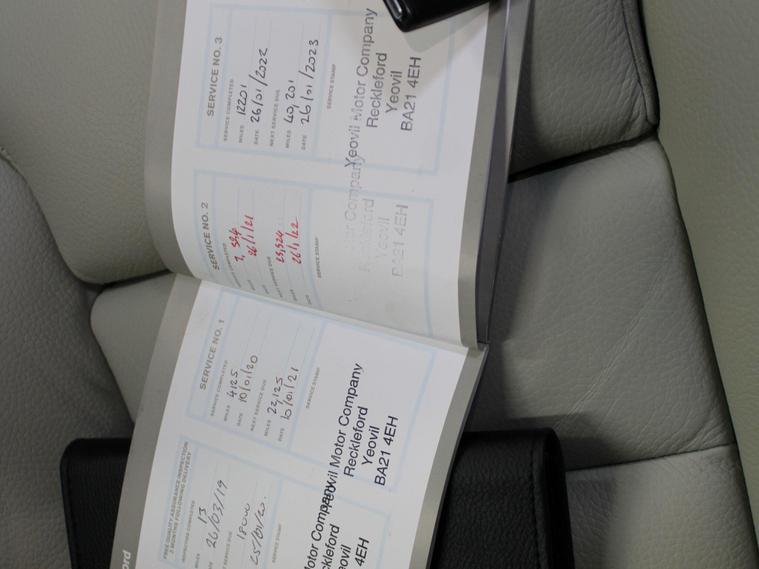 FREE QUALITY ASSURANCE INSPECTION
3 MONTHS FOLLOWING DELIVERY
INSPECTION COMPLETED
MILES 13
DATE 26/03/19
SERVICE DUE
18000
25/01/20.
SERVICE STAMP
Motor Company
Reckleford
Yeovil
4EH
SERVICE NO. 1
SERVICE COMPLETED
MILES 4125
DATE 10/01/20
NEXT SERVICE DUE
MILES 22,125
DATE 10/01/21
SERVICE STAMP
Yeovil Motor Company
Reckleford
Yeovil
BA21 4EH
SERVICE NO. 2
COMPLETED
26/1/21
NEXT SERVICE DUE
25,524
26/1/22
SERVICE STAMP
Motor Company
Reckleford
Yeovil
BA21 4EH
SERVICE NO. 3
SERVICE COMPLETED
MILES 12201
DATE 26/01/2022
NEXT SERVICE DUE
MILES 40,201
DATE 26/01/2023
SERVICE STAMP
Yeovil Motor Company
Reckleford
Yeovil
BA21 4EH